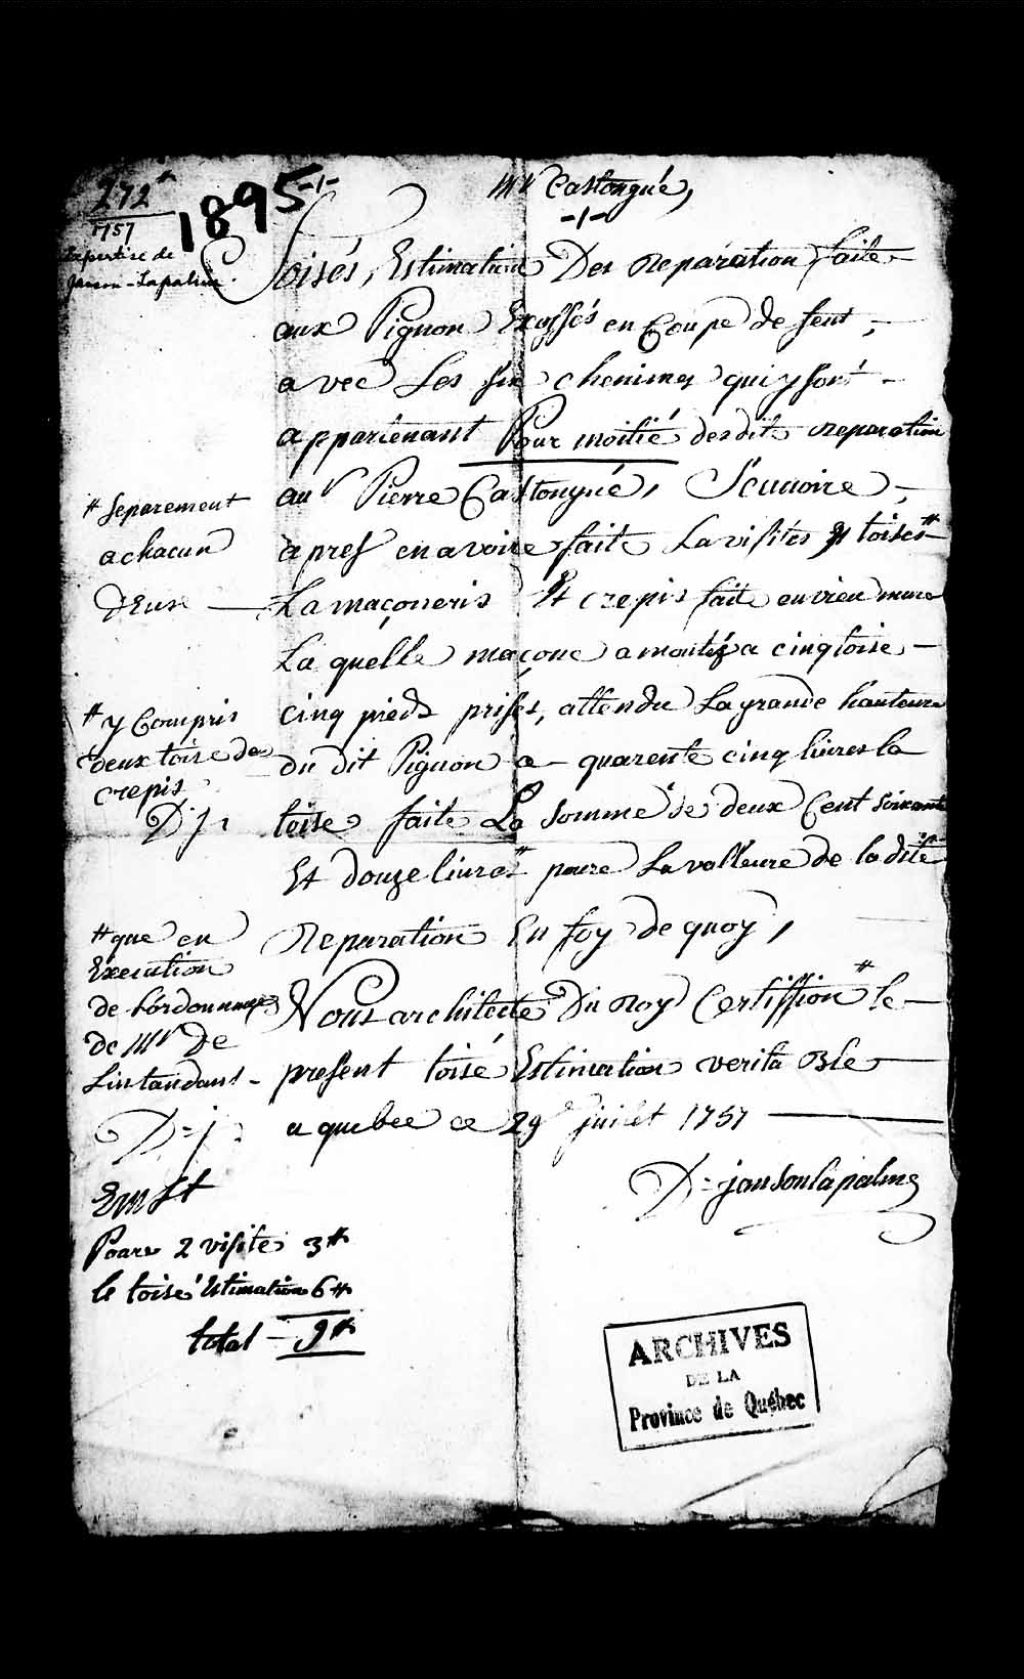 272#
1757
1895
-1-
Expertise de
Janson-Lapalme.
Mr Castongué,
-1-
Toisés, Estimation Des Reparation faite
aux Pignon Exossés en Coupe de feut,
avec Les six cheminey qui y sont
appartenant Pour moitié desdite reparation
au Sr Pierre Castongué,
apres en avoire faite La visites Et toisés #
La maconeris Et crepis faite en vieu mure
La quélle maçonc a montéz a cinq toise
cinq pieds prises, attendu La grande hauteure
du dit Pignon a quarente cinq livres la
toise faite La somme de deux Cent soixante
Et douze livres # poure La valleure de la dite
Reparation En foy de quoy,
Nous architecte Du Roy Certiffion # le
present toisé Estimation verita ble
a quebec ce 29e juillet 1757
D=jansonlapalme
# Separement
a chacun
D'Eux
# y Compris
deux toise de
crepis
D.j.
# que en
Execution
de L'ordonnance
de Mr De
Lintandant
D=j:
Poure 2 visite 3#
le toisé Estimation 6#
total 9#
ARCHIVES
DE LA
Province de Québec